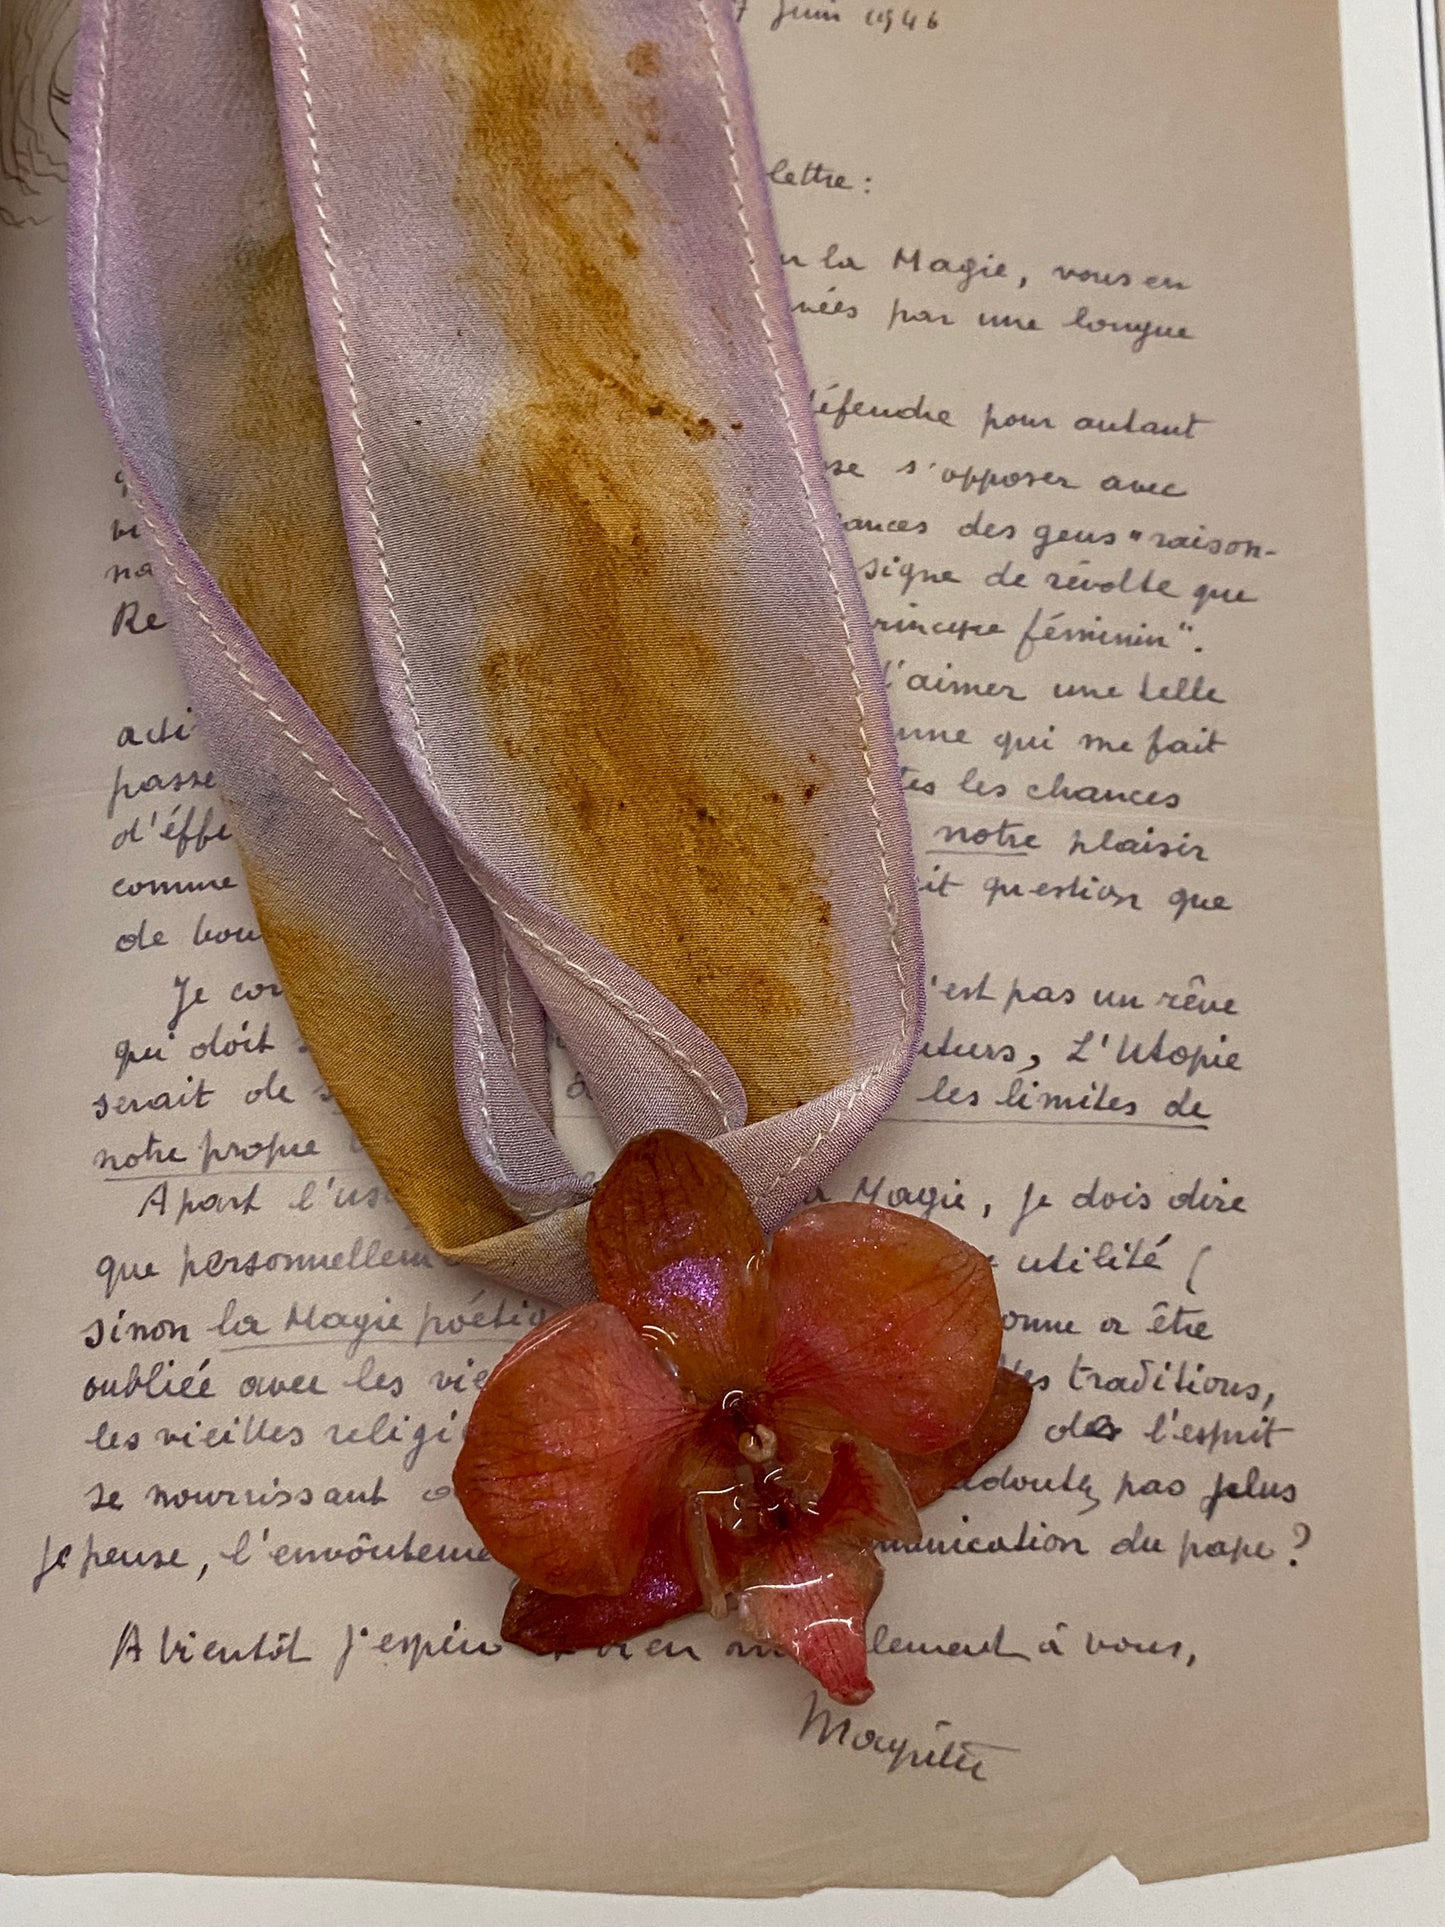 7 Juin 1946
lettre :
la Magie, vous en
nées par une longue
défendre pour autant
se s'opposer avec
ances des gens "raison-
na signe de révolte que
Re principe féminin".
l'aimer une telle
acti une qui me fait
passe tes les chances
d'éffe notre plaisir
comme it question que
de bou
Je con 'est pas un rêve
qui doit uturs, L'Utopie
serait de les limites de
notre propre
Apart l'us la Magie, je dois dire
que personnellem utilité (
sinon la Magie poétiq onne a être
oubliée avec les vie tes traditions,
les vieilles religi de l'esprit
se nourrissant pas plus
je pense, l'envôuteme munication du pape ?
A bientôt j'espère et bien lement à vous,
Magritte